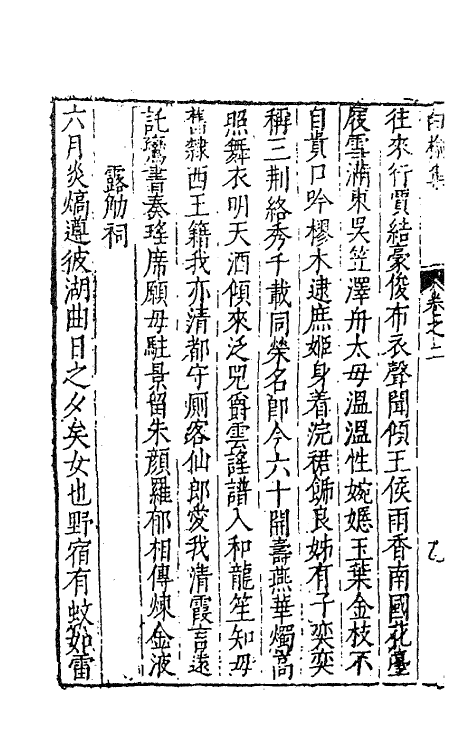 白榆集
卷之二
往來行賈結豪俊布衣聲聞傾王侯雨香南國花臺
履雪滿東吳笠澤舟太母溫溫性婉嫕玉葉金枝不
自貴口吟樛木逮庶姬身着浣裙飾良姊有子奕奕
稱三荆絡秀千載同榮名即今六十開壽燕華燭高
照舞衣明天酒傾來泛兕爵雲謠譜入和龍笙知母
舊隸西王籍我亦清都守厠客仙郎愛我清霞言遠
託鸞書奏瑤席願母駐景留朱顏羅郁相傳煉金液
露觔祠
六月炎熇遵彼湖曲日之夕矣女也野宿有蚊如雷